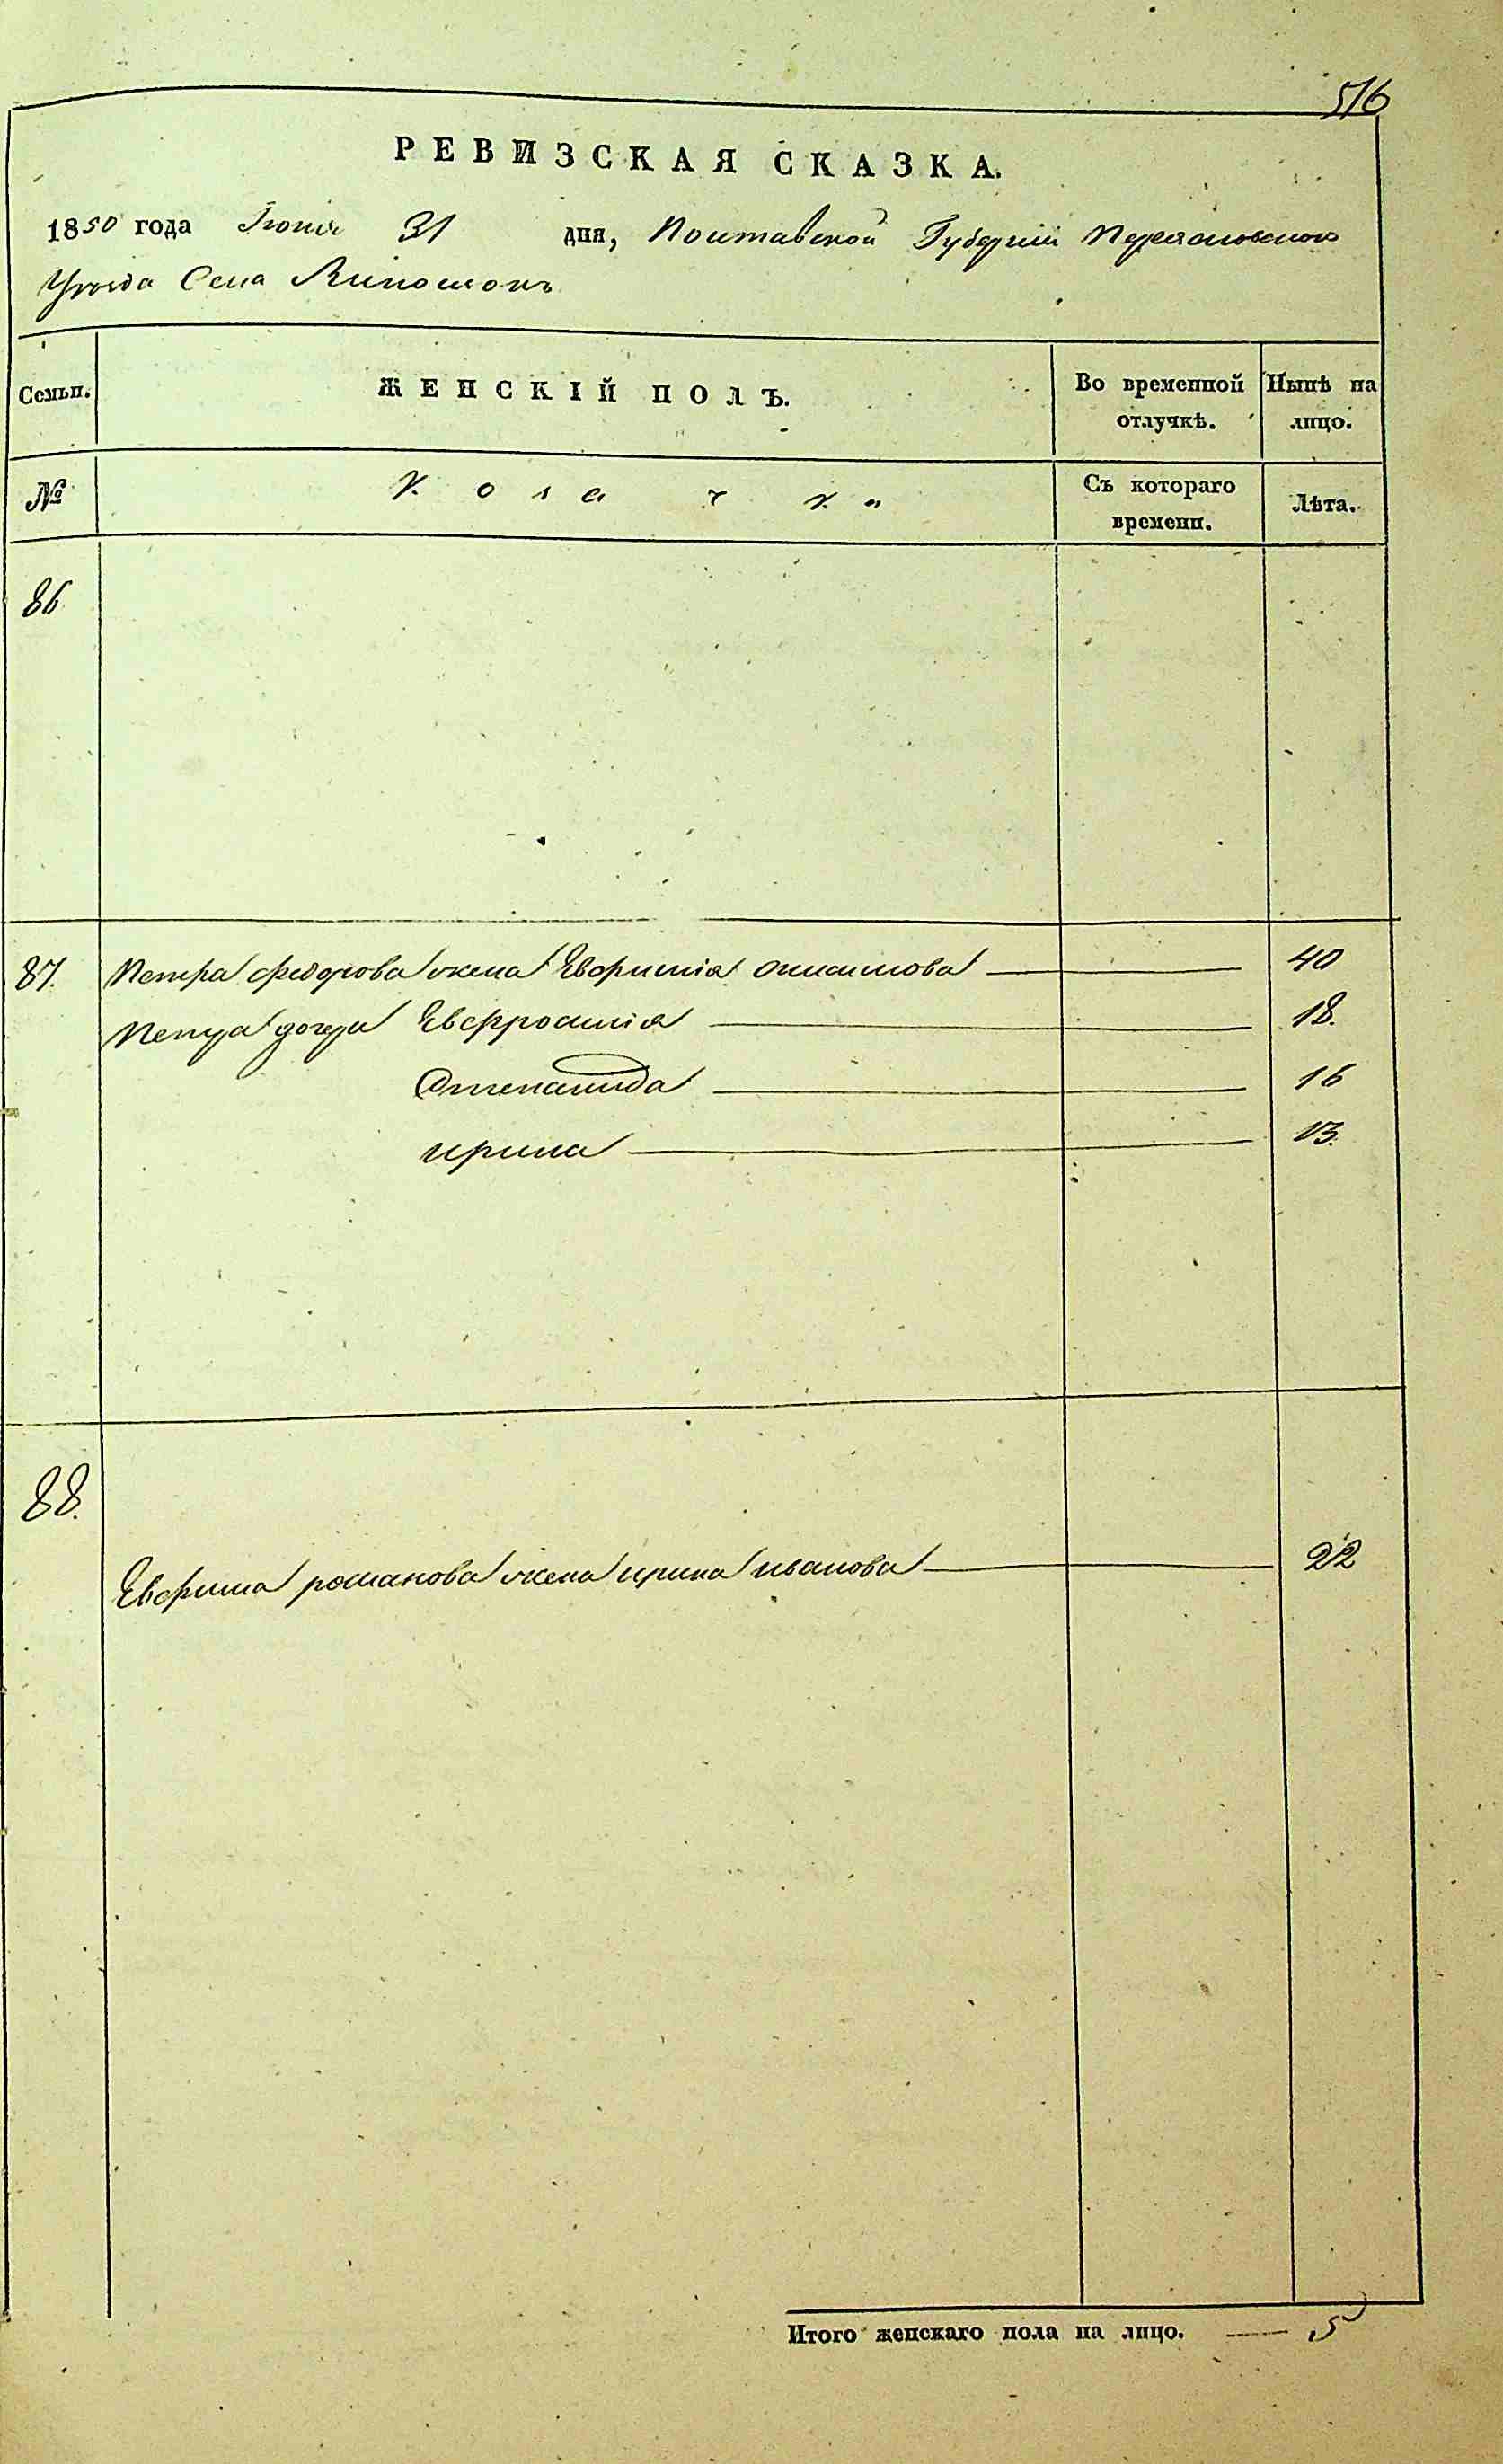 516
РЕВИЗСКАЯ СКАЗКА.
1850 года Іюня 31 дня, Полтавской Губерніи Переясловского
Уезда Села
Семьи. ЖЕНСКІЙ ПОЛЪ. Во временной отлучкѣ. Нынѣ на лицо.
№ Съ котораго времени. Лѣта.
86
87. Петра федорова жена Евфимія 40
Петра дочери Евфросинія 18.
Степанида 16
ирина 13.
88.
Ефима романова жена ирина иванова 22
Итого женскаго пола на лицо. — 5